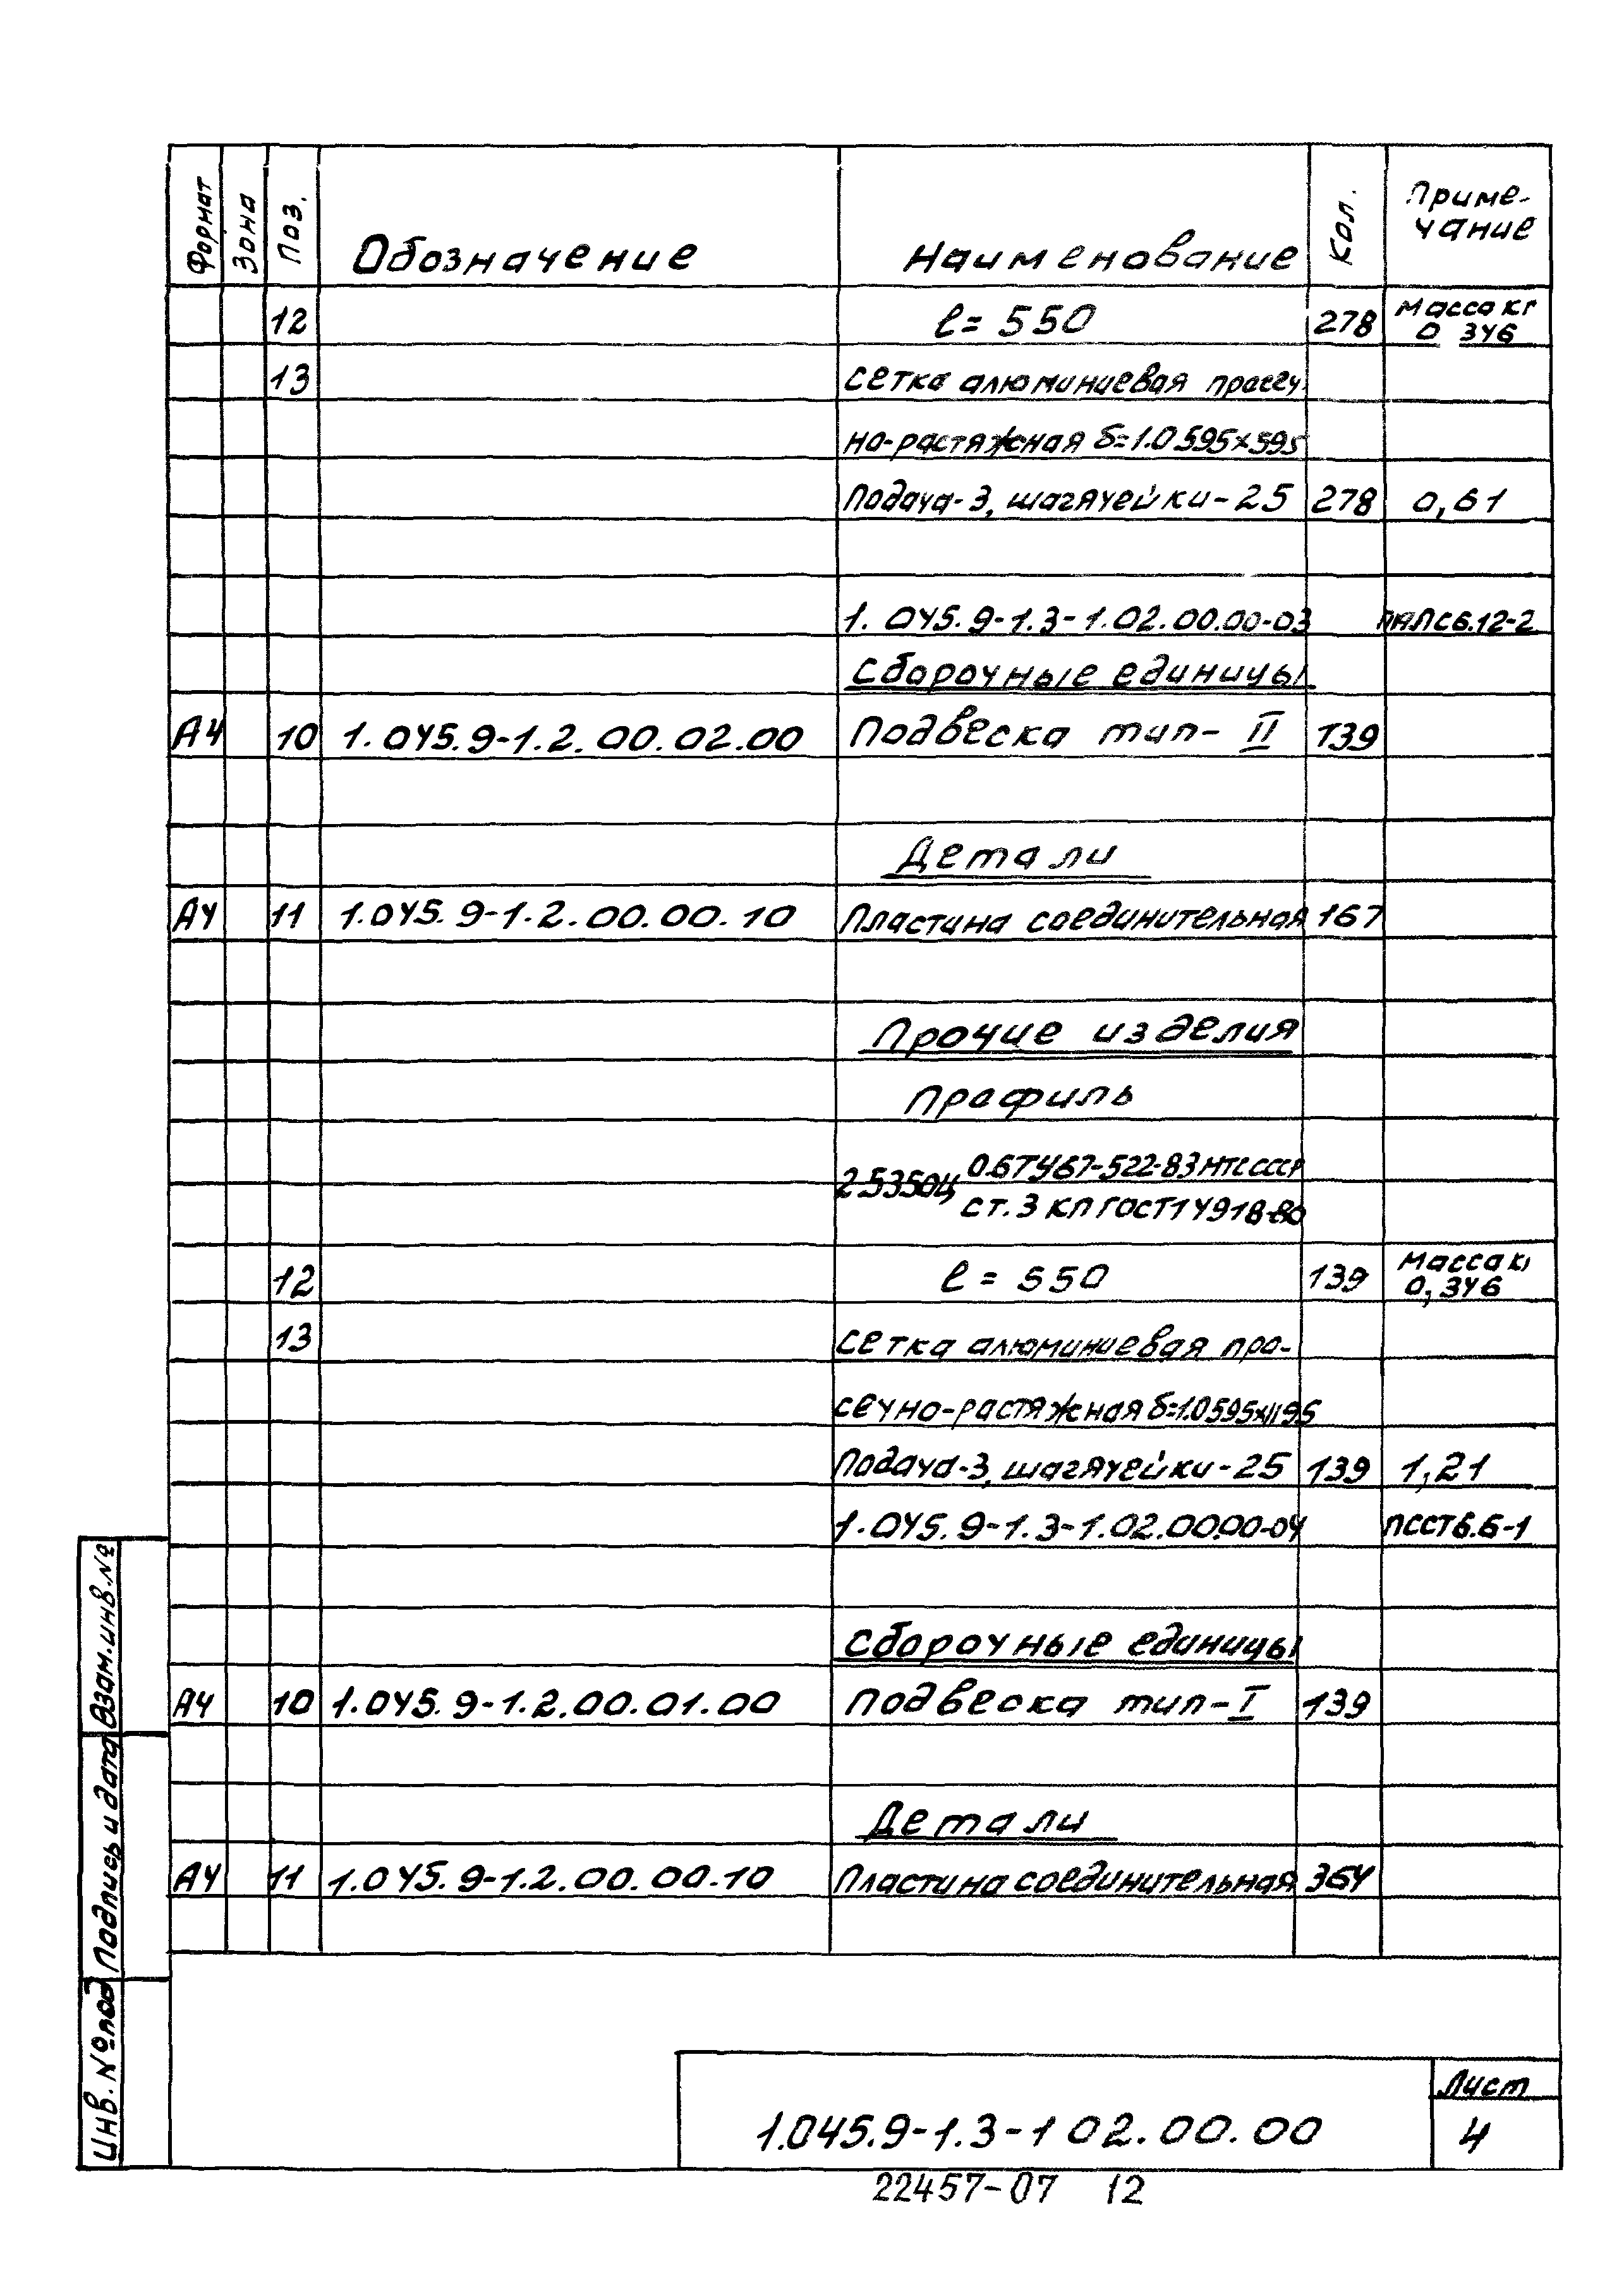 Формат Зона Поз. Обозначение Наименование Кол. Приме-
чание
12 ℓ= 550 278 Масса кг
0 346
13 сетка алюминиевая просеч
но-растяжная δ=1.0 595×595
Подача-3, шаг ячейки-25 278 0,61
1. 045.9-1.3-1.02.00.00-03 6.12-2
Сборочные единицы
А4 10 1.045.9-1.2.00.02.00 Подвеска тип- II 139
Детали
А4 11 1.045.9-1.2.00.00.10 Пластина соединительная 167
Прочие изделия
Профиль
0.6ТУ67-522-83 МТС СССР
ст. 3 кп ГОСТ 14918-80
12 ℓ = 550 139 Масса кг
0,346
13 сетка алюминиевая про-
сечно-растяжная δ=1.0 595×1195
Подача-3, шаг ячейки-25 139 1,21
1.045.9-1.3-1.02.00.00-04 ПССТ6.6-1
Сборочные единицы
А4 10 1.045.9-1.2.00.01.00 Подвеска тип-I 139
Детали
А4 11 1.045.9-1.2.00.00.10 Пластина соединительная 364
Взам.инв.№
Подпись и дата
Инв.№под
1.045.9-1.3-1 02.00.00
Лист
4
22457-07 12